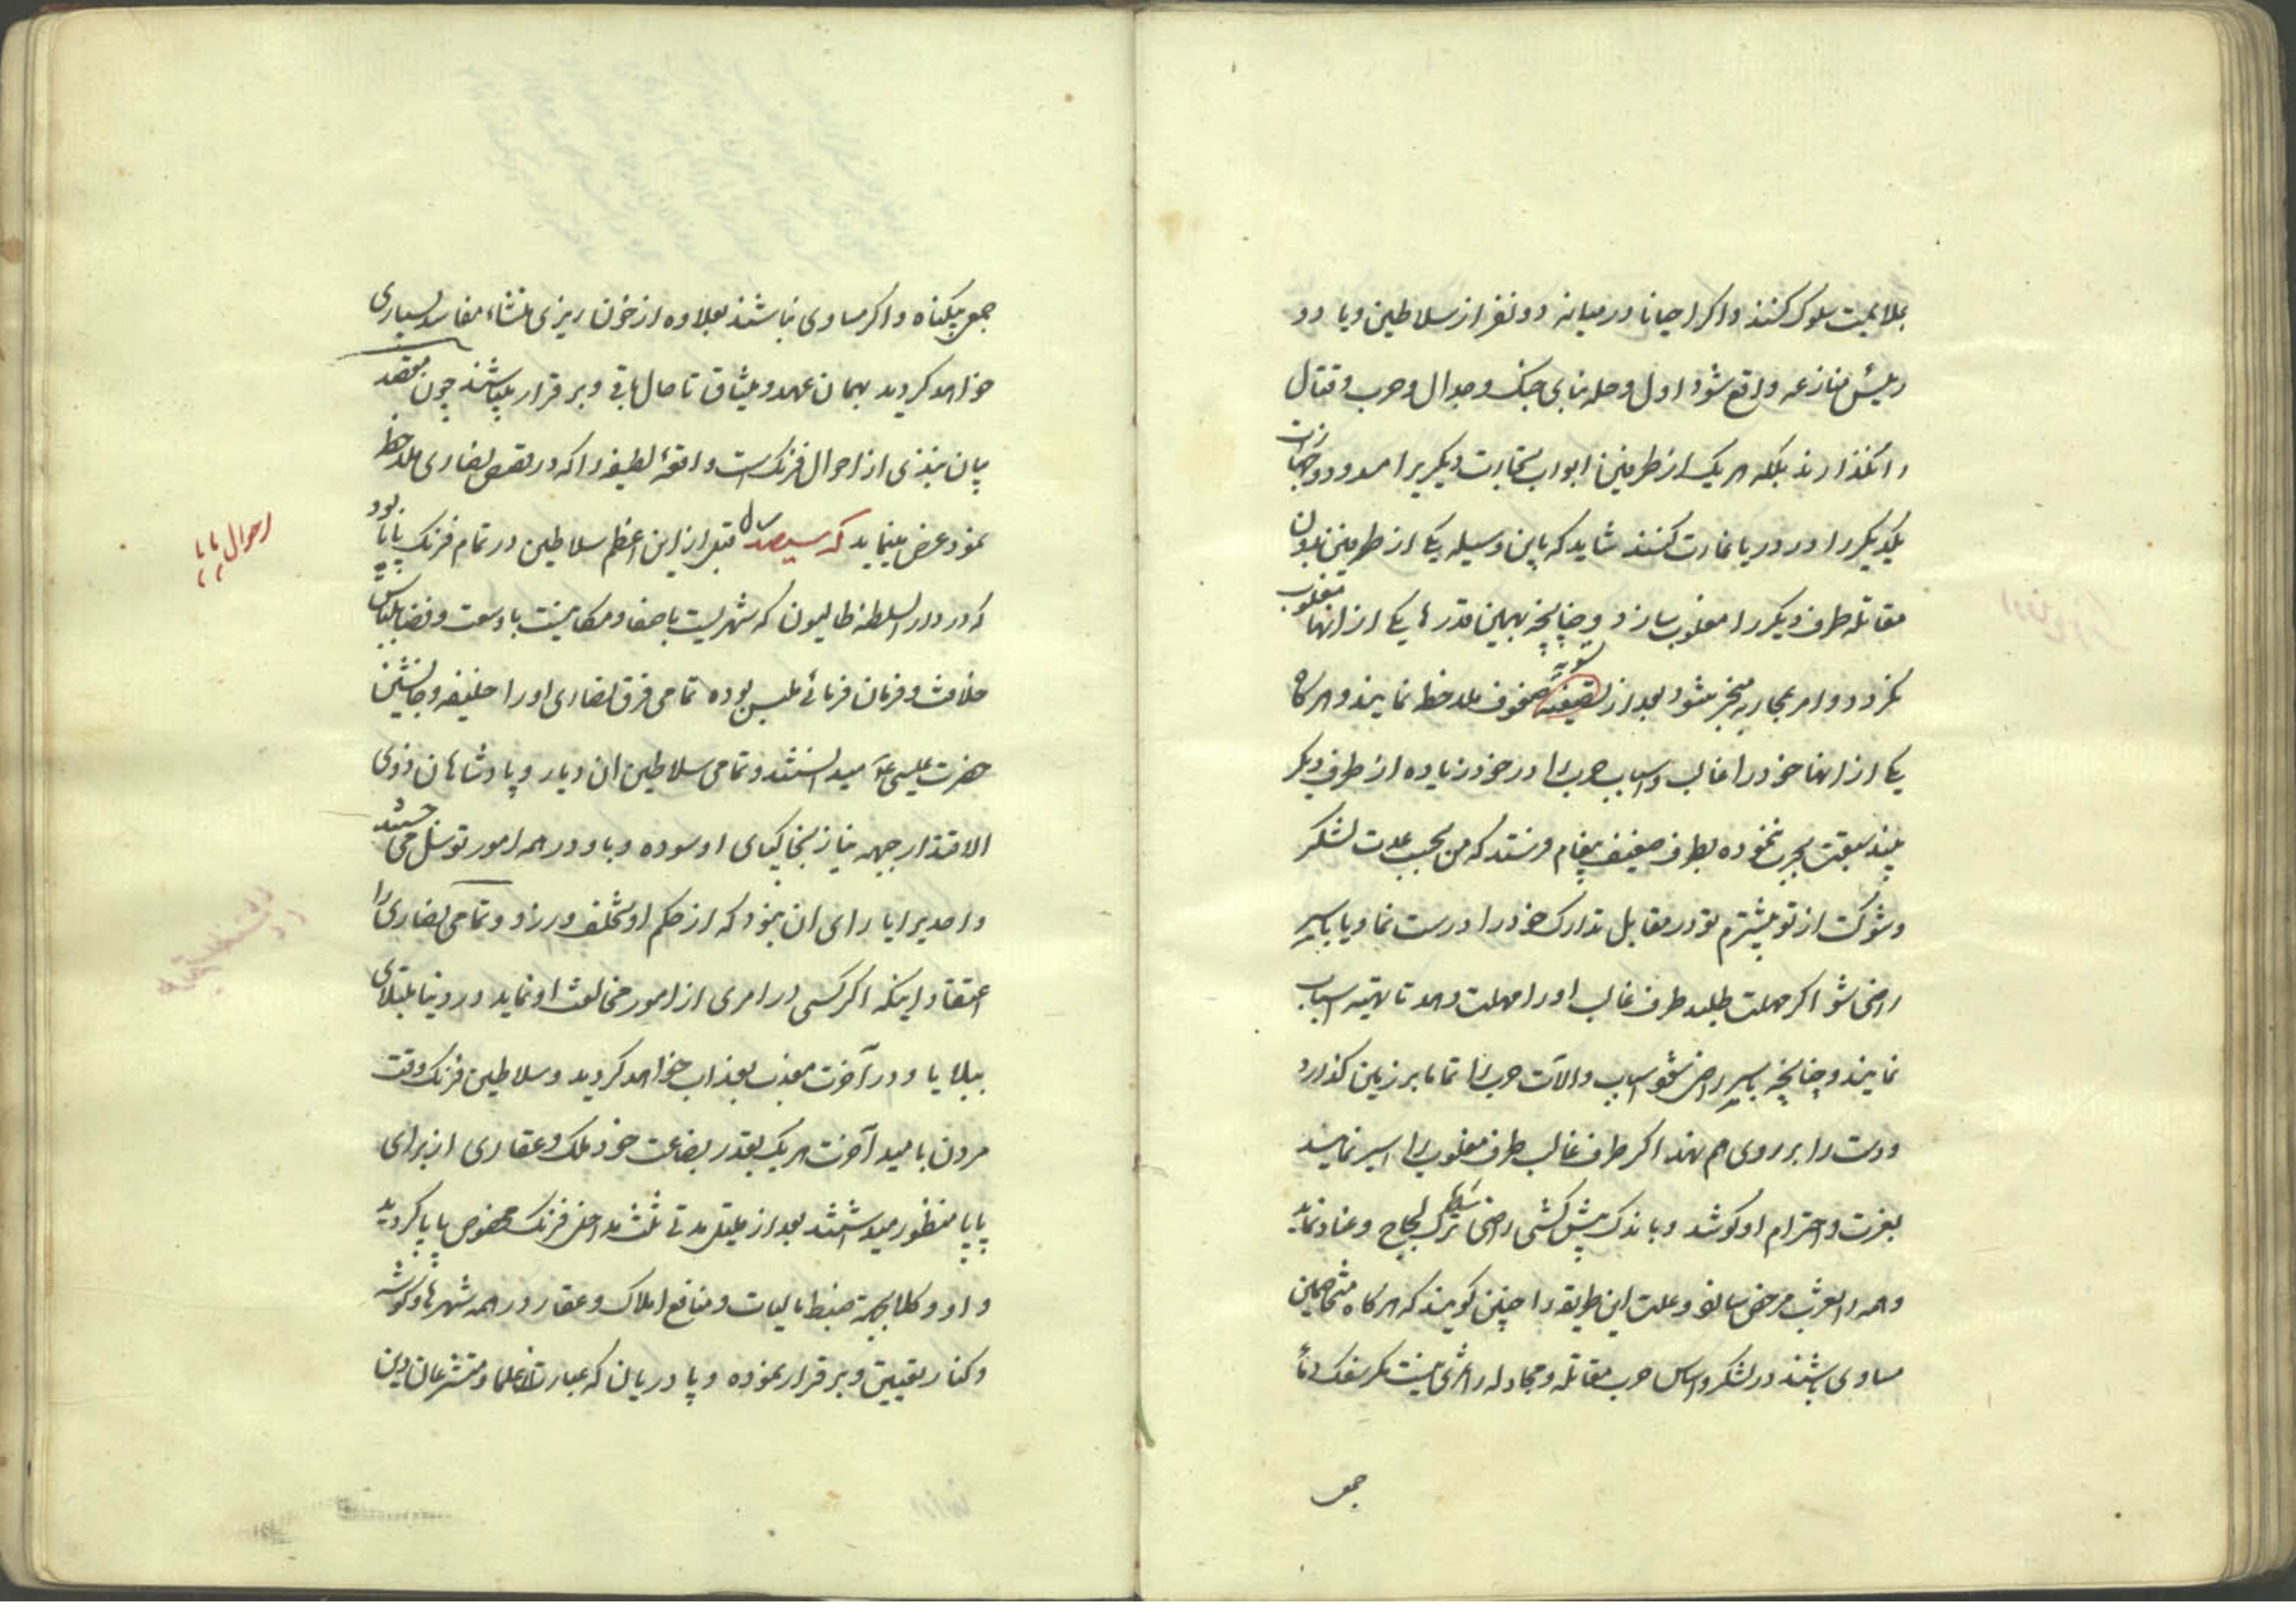 بملایمت سلوک کنند و اکر احیانا در میانه دو نفر از سلاطین و یا دو
رئیس منازعه واقع شود اول وهله بنای جنک و جدال و حرب و قتال
را نگذارند بلکه هر یک از طرفین ابواب تجارت دیکریرا مسدود و جهازات
یکدیکر را در دریا غارت کنند شاید که باین وسیله یکی از طرفین بدون
مقاتله طرف دیکر را مغلوب سازد و چنانچه بهمین قدرها یکی از آنها مغلوب
نکردد و امر بمحاربه منجر شود بعد از تسویه صفوف ملاحظه نمایند و هرکاه
یکی از آنها خود را غالب و اسباب حرب را در خود زیاده از طرف دیکر
بیند سبقت بحرب ننموده بطرف ضعیف پیغام فرستد که من بحسب عدت لشکر
و شوکت از تو بیشترم تو در مقابل تدارک خود را درست نما و یا باسیری
راضی شو اکر مهلت طلبد طرف غالب او را مهلت دهد تا تهیه اسباب
نمایند و چنانچه باسیری راضی شود اسباب و آلات حرب را تماما بر زمین گذارد
و دست را بر روی هم نهد اکر طرف غالب طرف مغلوب را اسیر نمایند
بعزت و احترام او کوشد و باندک پیش کشی راضی بشرط ترک لجاج و عناد نماید
و همه را بعزت مرخص سازند و علت این طریقه را چنین کویند که هرکاه متخاصمین
مساوی باشند در لشکر و اساس حرب مقاتله و مجادله را ثمری نیست مکر سفک دماء
جمعی
جمعی بیکناه و اکر مساوی نباشند بعلاوه از خون ریزی منشاء مفاسد بسیاری
خواهد کردید بهمان عهد و میثاق تا حال باقی و برقرار میباشند چون مقصد
بیان نبذی از احوال فرنک است واقعهٔ لطیفه را که در قصص نصاری ملاحظه
نموده عرض مینماید که سیصد سال قبل از این اعظم سلاطین در تمام فرنک پاپا بود
که در دار السلطنه طالیون که شهریست باصفا و مکانیست با وسعت و فضا بلباس
خلافت و فرمان فرمائی ملبس بوده تمامی فرق نصاری او را خلیفه و جانشین
حضرت عیسی ع میدانستند و تمامی سلاطین آن دیار و پادشاهان ذوی
الاقتدار جبهه نیاز بخاکپای او سوده و باو در همه امور توسل می جستند
و احدیرا یارای آن نبود که از حکم او تخلف ورزد و تمامی نصاری را
اعتقاد اینکه اکر کسی در امری از امور مخالفت او نماید در دنیا مبتلای
ببلایا و در آخرت معذب بعذاب خواهد کردید و سلاطین فرنک وقت
مردن بامید آخرت هر یک بقدر بضاعت خود ملک و عقاری از برای
پاپا منظور میداشتند بعد از قلیل مدتی ثلث مداخل فرنک مخصوص پاپا کردید
و او وکلا بجهة ضبط مالیات و منافع املاک و عقار در همه شهرها و کوشه
و کنار تعیین و برقرار نموده و پادریان که عبارت از علما و متشرعان دین
احوال پاپا